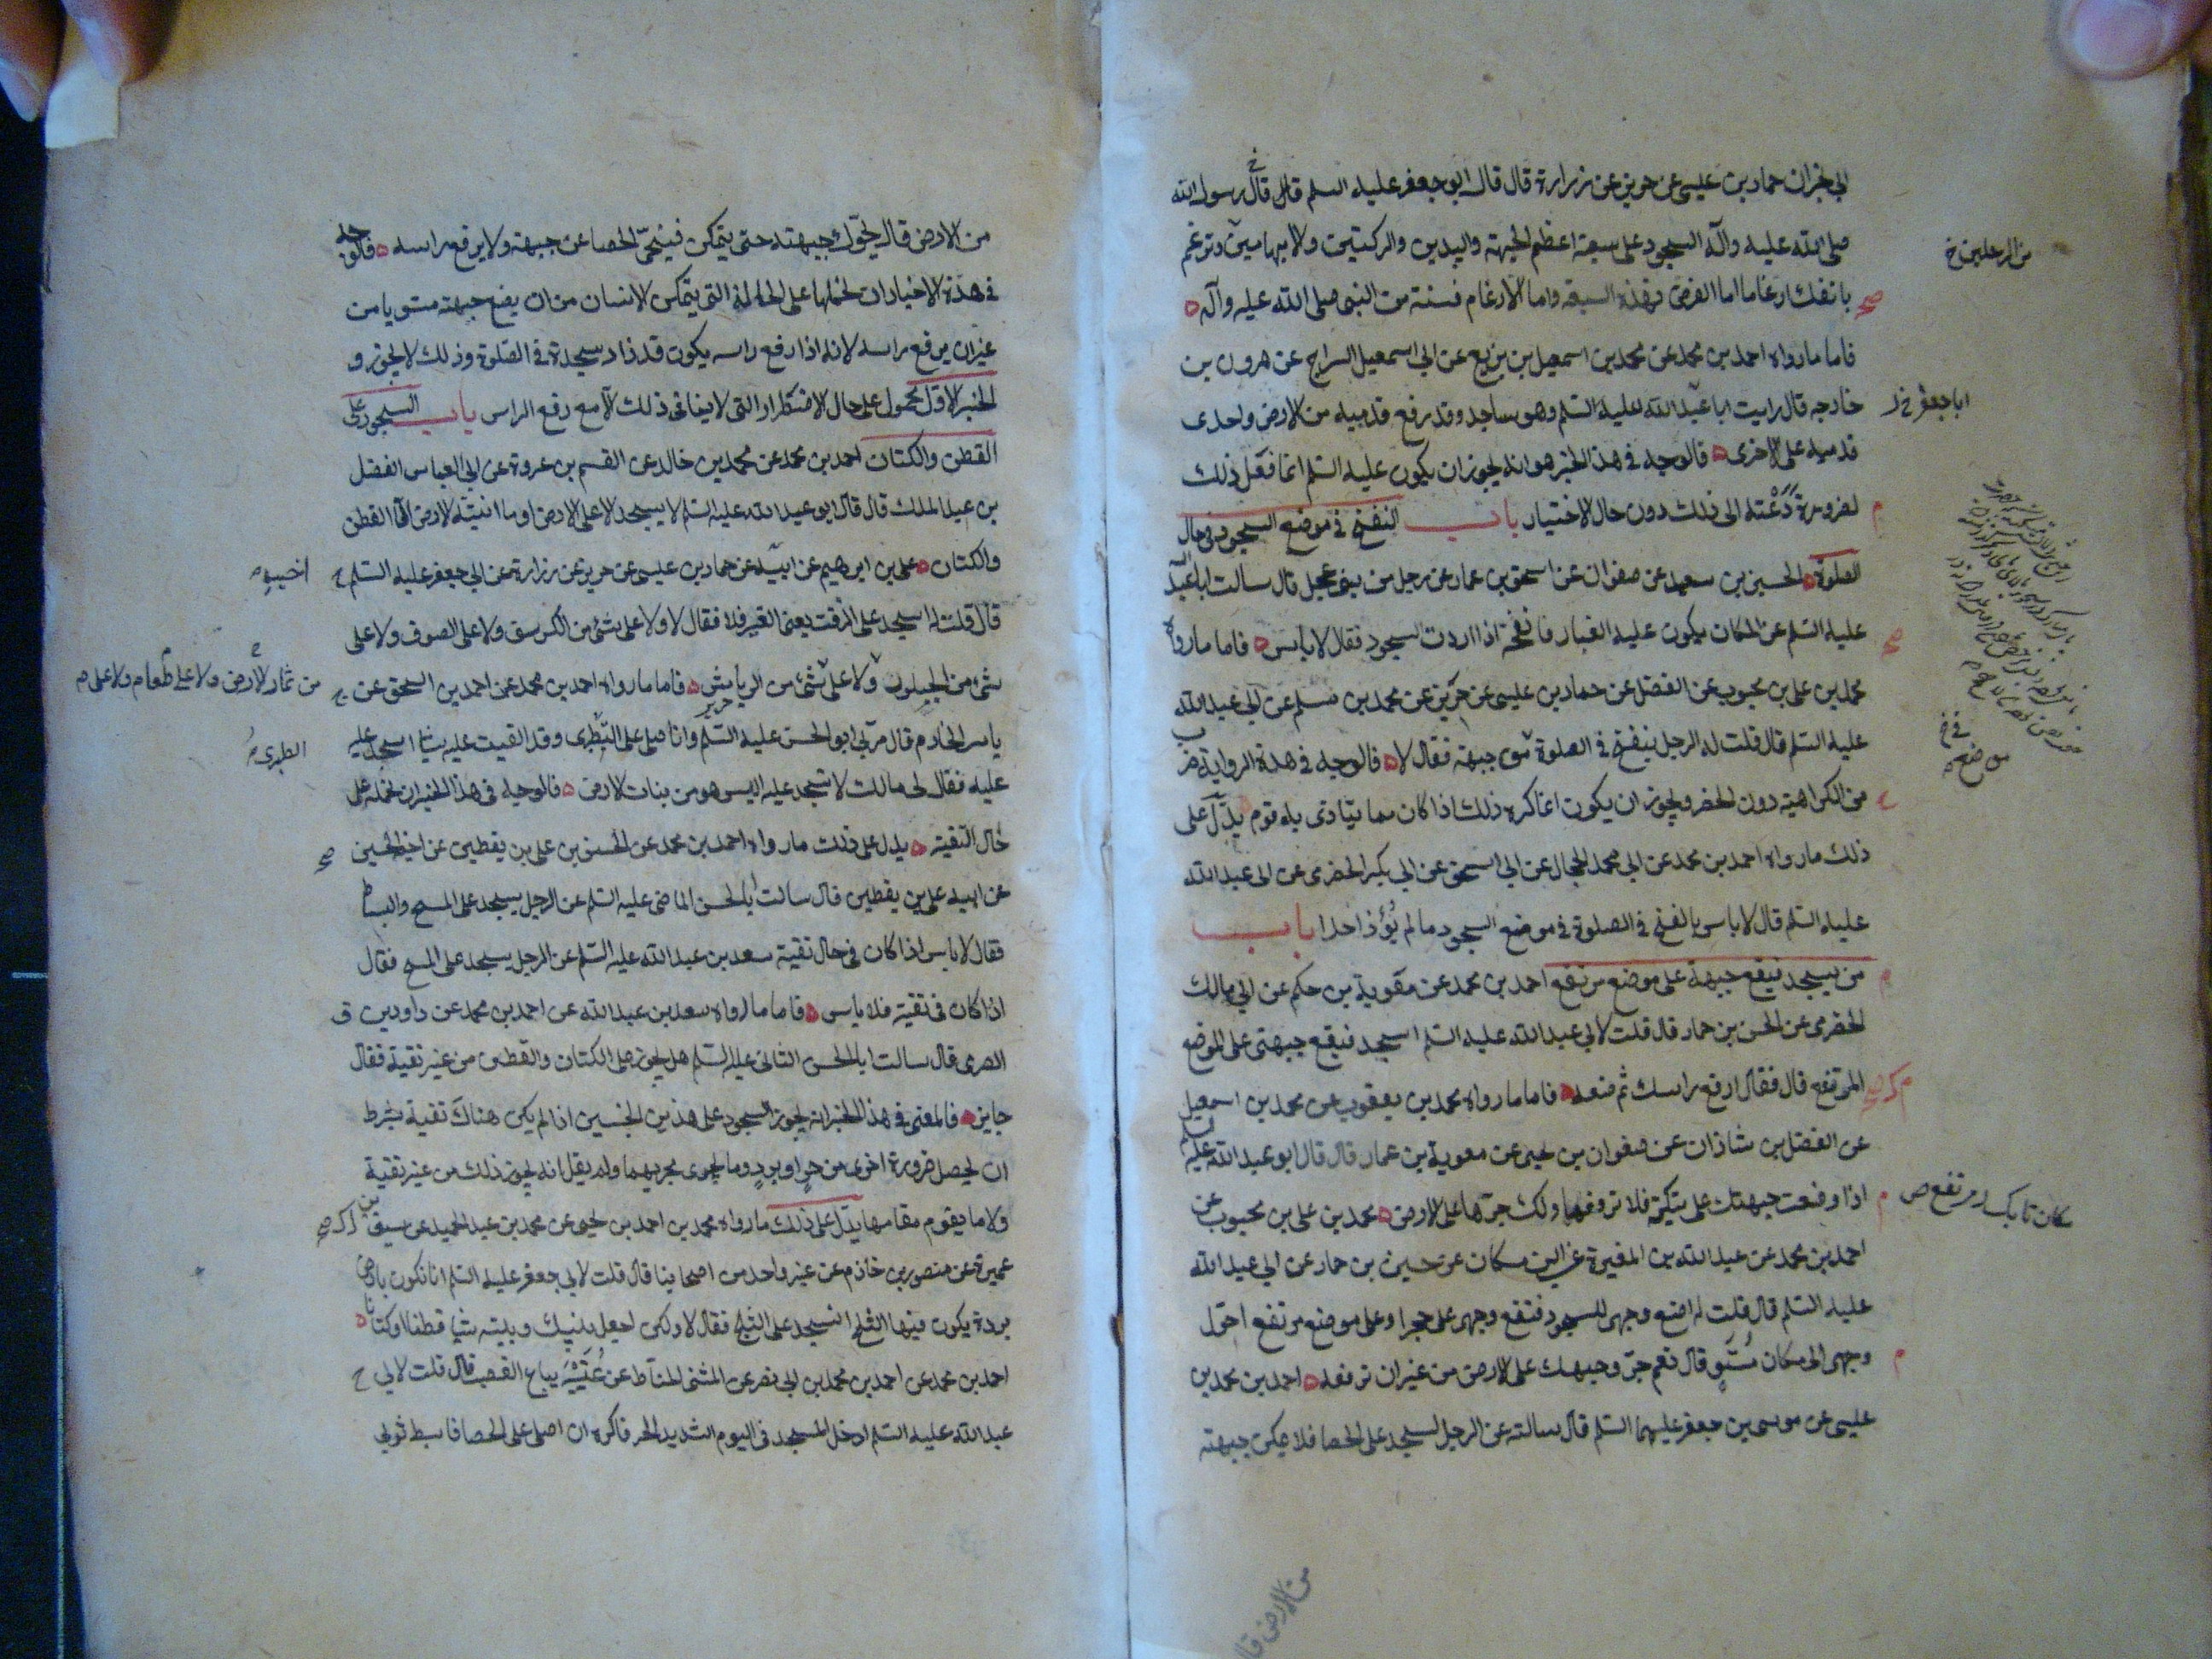 ابي نجران حماد بن عيسى عن حريز عن زرارة قال قال ابو جعفر عليه السلم قال قال رسول الله
صلى الله عليه وآله السجود على سبعة اعظم الجبهة واليدين والركبتين والابهامين وترغم
من الرجلين خ
بانفك ارغاما اما الفرض فهذه السبعة واما الارغام فسنة من النبى صلى الله عليه وآله
فاما ما رواه احمد بن محمد عن محمد بن اسمعيل بن بزيع عن ابي اسمعيل السراج عن هرون بن
خارجه قال رايت ابا عبد الله عليه السلم وهو ساجد وقد رفع قدميه من الارض واحدى
ابا جعفر خ ل
قدميه على الاخرى فالوجه فى هذا الخبر هو انه يجوز ان يكون عليه السلم انما فعل ذلك
لضرورة دعته الى ذلك دون حال الاختيار باب النفخ فى موضع السجود فى حال
الصلوة الحسين بن سعيد عن صفوان عن اسحق بن عمار عن رجل من بني عجل قال سالت ابا عبد الله
عليه السلم عن المكان يكون عليه الغبار فانفخه اذا اردت السجود فقال لا باس فاما ما رواه
محمد بن على بن محبوب عن الفضل عن حماد بن عيسى عن حريز عن محمد بن مسلم عن ابي عبد الله
عليه السلم قال قلت له الرجل ينفخ فى الصلوة موضع جبهته فقال لا فالوجه فى هذه الرواية ضرب
موضع
من الكراهية دون الحضر ويجوز ان يكون انما كره ذلك اذا كان مما يتاذى به قوم يدل على
ذلك ما رواه احمد بن محمد عن ابي محمد الحجال عن ابي اسحق عن ابي بكر الحضرمى عن ابى عبد الله
عليه السلم قال لا باس بالنفخ فى الصلوة فى موضع السجود ما لم يؤذ احدا باب
من يسجد فيقع جبهته على موضع مرتفع احمد بن محمد عن معوية بن حكم عن ابي مالك
الحضرمى عن الحسن بن حماد قال قلت لابي عبد الله عليه السلم اسجد فيقع جبهتى على الموضع
المرتفع قال فقال ارفع راسك ثم ضعه فاما ما رواه محمد بن يعقوب عن محمد بن اسمعيل
عن الفضل بن شاذان عن صفوان بن يحيى عن معوية بن عمار قال قال ابو عبد الله عليه السلم
اذا وضعت جبهتك على نبكة فلا ترفعها ولكن جرها على الارض محمد بن على بن محبوب عن
احمد بن محمد عن عبد الله بن المغيرة عن ابن مسكان عن حسين بن حماد عن ابي عبد الله
عليه السلم قال قلت له اضع وجهى للسجود فتقع وجهى على حجر او على موضع مرتفع احول
وجهى الى مكان مستو قال نعم جر وجهك على الارض من غير ان ترفعه احمد بن محمد بن
عيسى عن موسى بن جعفر عليهما السلم قال سالته عن الرجل يسجد على الحصا فلا يمكن جبهته
من الارض قال
من الارض قال يحرك جبهته حتى يتمكن فينحى الحصا عن جبهته ولا يرفع راسه فالوجه
فى هذه الاخبار ان نحملها على الحالة التى يتمكن الانسان من ان يضع جبهته مستويا من
غير ان يرفع راسه لانه اذا رفع راسه يكون قد زاد سجدة فى الصلوة وذلك لا يجوز و
الخبر الاول محمول على حال الاضطرار التى لا يتاتى ذلك الا مع رفع الراس باب السجود على
القطن والكتان احمد بن محمد عن محمد بن خالد عن القسم بن عروة عن ابي العباس الفضل
بن عبد الملك قال قال ابو عبد الله عليه السلم لا يسجد الا على الارض او ما انبتته الارض الا القطن
والكتان على بن ابرهيم عن ابيه عن حماد بن عيسى عن حريز عن زرارة عن ابي جعفر عليه السلم
قال قلت له اسجد على الزفت يعنى القير فلا فقال لا ولا على شئ من الكرسف ولا على الصوف ولا على
شئ من الحيوان ولا على شئ من الرياش فاما ما رواه احمد بن محمد عن احمد بن اسحق عن
من ثمار الارض ولا على طعام ولا على م
ياسر الخادم قال مر بي ابو الحسن عليه السلم وانا اصلى على الطبرى وقد القيت عليه شيئا اسجد عليه
الطبرى
عليه فقال لى مالك لا تسجد عليه اليس هو من نبات الارض فالوجه فى هذا الخبر ان نحمله على
حال التقية يدل على ذلك ما رواه احمد بن محمد عن الحسن بن على بن يقطين عن اخيه الحسين
عن ابيه على بن يقطين قال سالت ابا الحسن الماضى عليه السلم عن الرجل يسجد على المسح والبساط
فقال لا باس اذا كان فى حال تقية سعد بن عبد الله عليه السلم عن الرجل يسجد على المسح فقال
اذا كان فى تقية فلا باس فاما ما رواه سعد بن عبد الله عن احمد بن محمد عن داود بن
الصرمى قال سالت ابا الحسن الثانى عليه السلم هل يجوز على الكتان والقطن من غير تقية فقال
جايز فالمعنى فى هذا الخبر انه يجوز السجود على هذين الجنسين اذا لم يكن هناك تقية بشرط
ان يحصل ضرورة اخرى من حر او برد وما يجرى مجريهما ولم يقل انه يجوز ذلك من غير تقية
ولا ما يقوم مقامها يدل على ذلك ما رواه محمد بن احمد بن يحيى عن محمد بن عبد الحميد عن سيف بن
عميرة عن منصور بن خازم عن غير واحد من اصحابنا قال قلت لابي جعفر عليه السلم انا نكون بارض
بردة يكون فيها الثلج انسجد على الثلج فقال لا ولكن اجعل بينك وبينه شيئا قطنا او كتانا
احمد بن محمد عن احمد بن محمد بن ابي نصر عن المثنى الحناط عن عيينة بياع القصب قال قلت لابي
عبد الله عليه السلم ادخل المسجد فى اليوم الشديد الحر فاكره ان اصلى على الحصا فابسط ثوبي